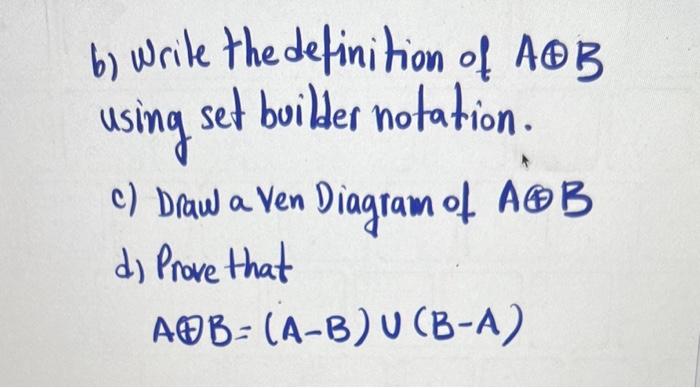 b) Write the definition of A⊕B
using set builder notation.
c) Draw a Ven Diagram of A⊕B
d) Prove that
A⊕B = (A-B) ∪ (B-A)